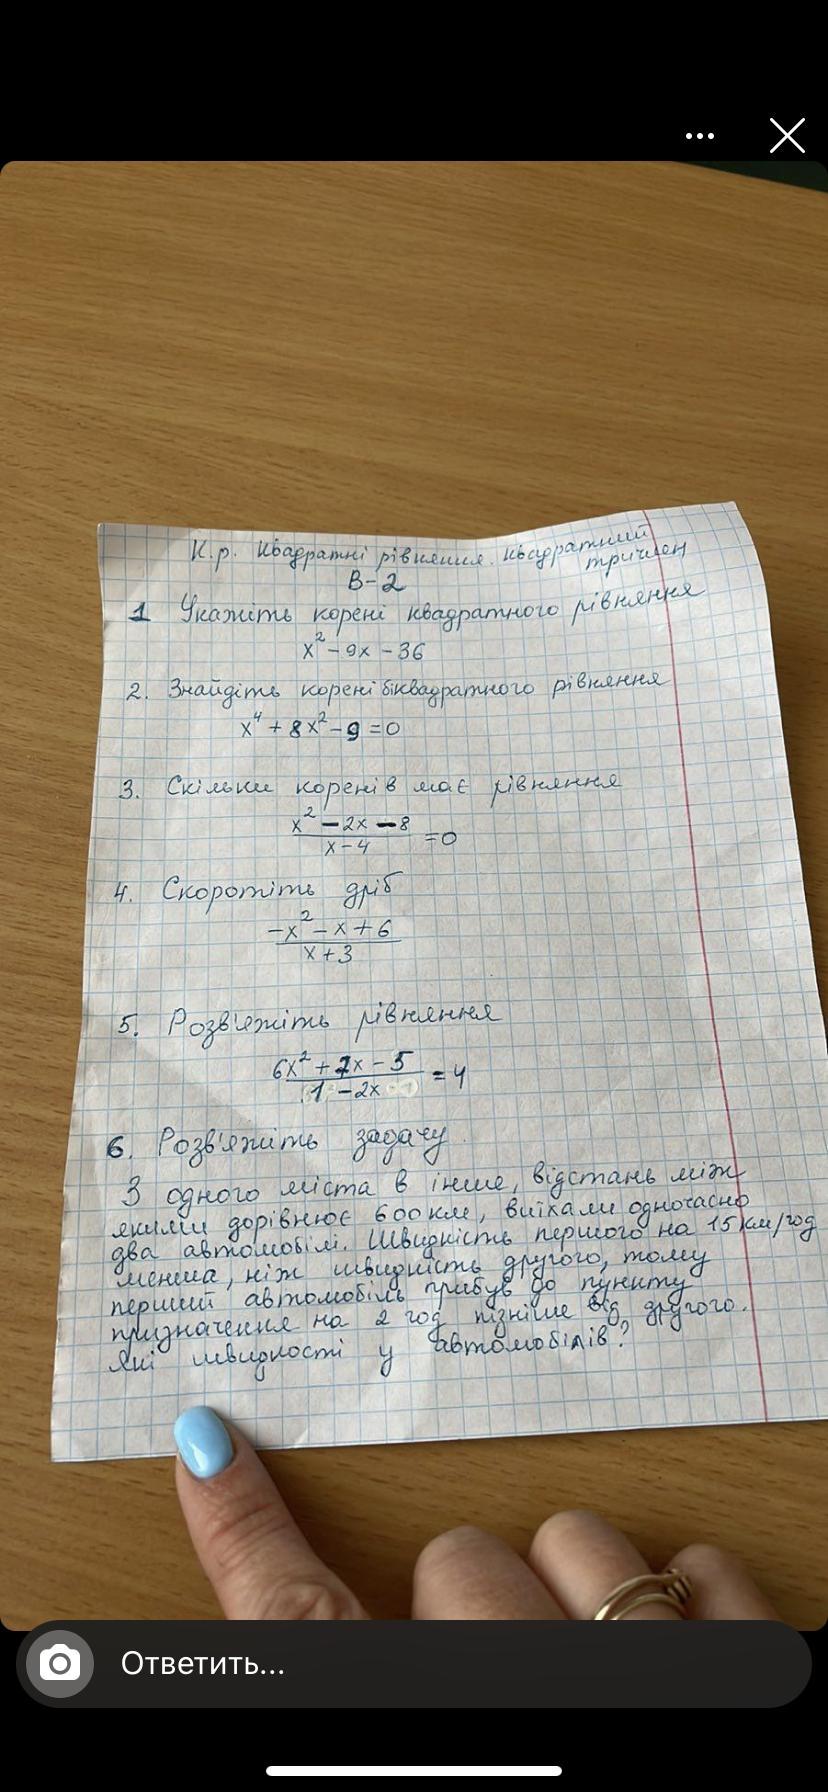 К.р. Квадратні рівняння. Квадратний
тричлен
В-2
1 Укажіть корені квадратного рівняння
x² - 9x - 36
2. Знайдіть корені біквадратного рівняння
x⁴ + 8x² - 9 = 0
3. Скільки коренів має рівняння
x² - 2x - 8
x - 4
= 0
4. Скоротіть дріб
-x² - x + 6
x + 3
5. Розв'яжіть рівняння
6x² + 7x - 5
1 - 2x
= 4
6. Розв'яжіть задачу.
З одного міста в інше, відстань між
якими дорівнює 600 км, виїхали одночасно
два автомобілі. Швидкість першого на 15 км/год
менша, ніж швидкість другого, тому
перший автомобіль прибув до пункту
призначення на 2 год пізніше від другого.
Які швидкості у автомобілів?
Ответить...